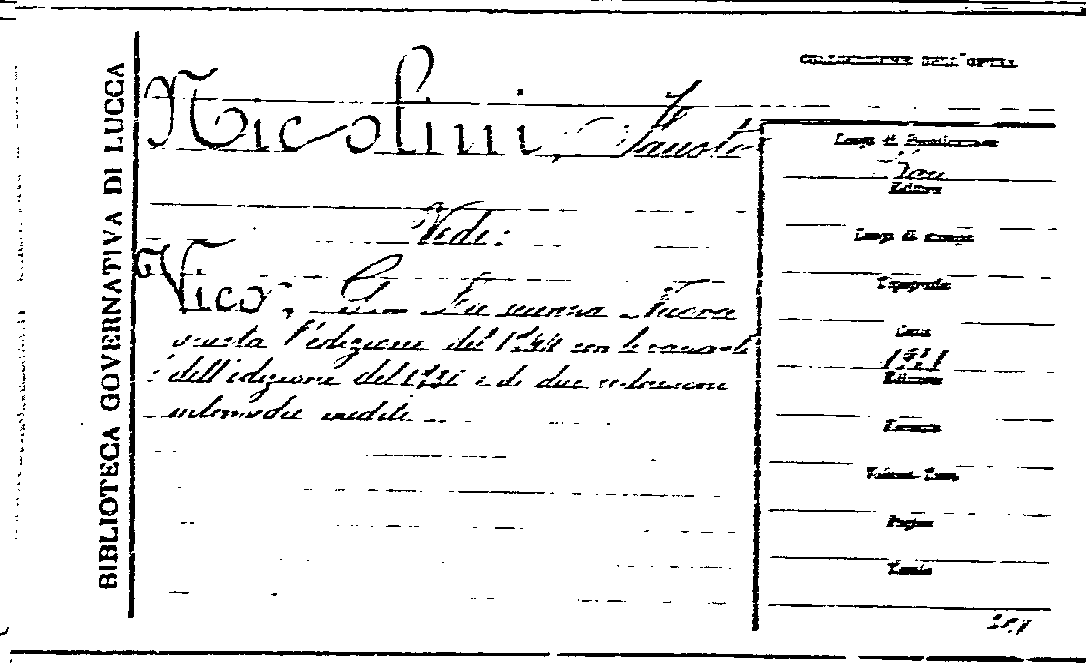 BIBLIOTECA GOVERNATIVA DI LUCCA
COLLOCAZIONE DELL'OPERA
Nicolini, Fausto
Vedi:
Vico, G. La scienza Nuova
giusta l'edizione del 1744 con le varianti
dell'edizione del 1730 e di due redazioni
intermedie inedite
Luogo di Pubblicazione
Editore
Luogo di stampa
Tipografia
Data
Edizione
Formato
Volumi Tomi
Pagine
Tavole